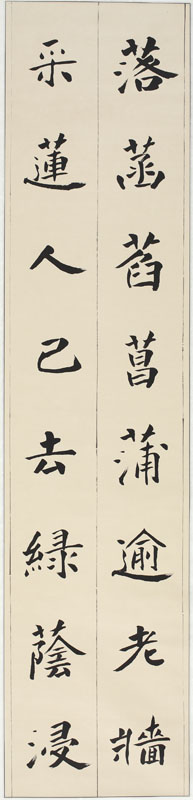 落菡萏菖蒲逾老牆
采蓮人已去綠蔭浸